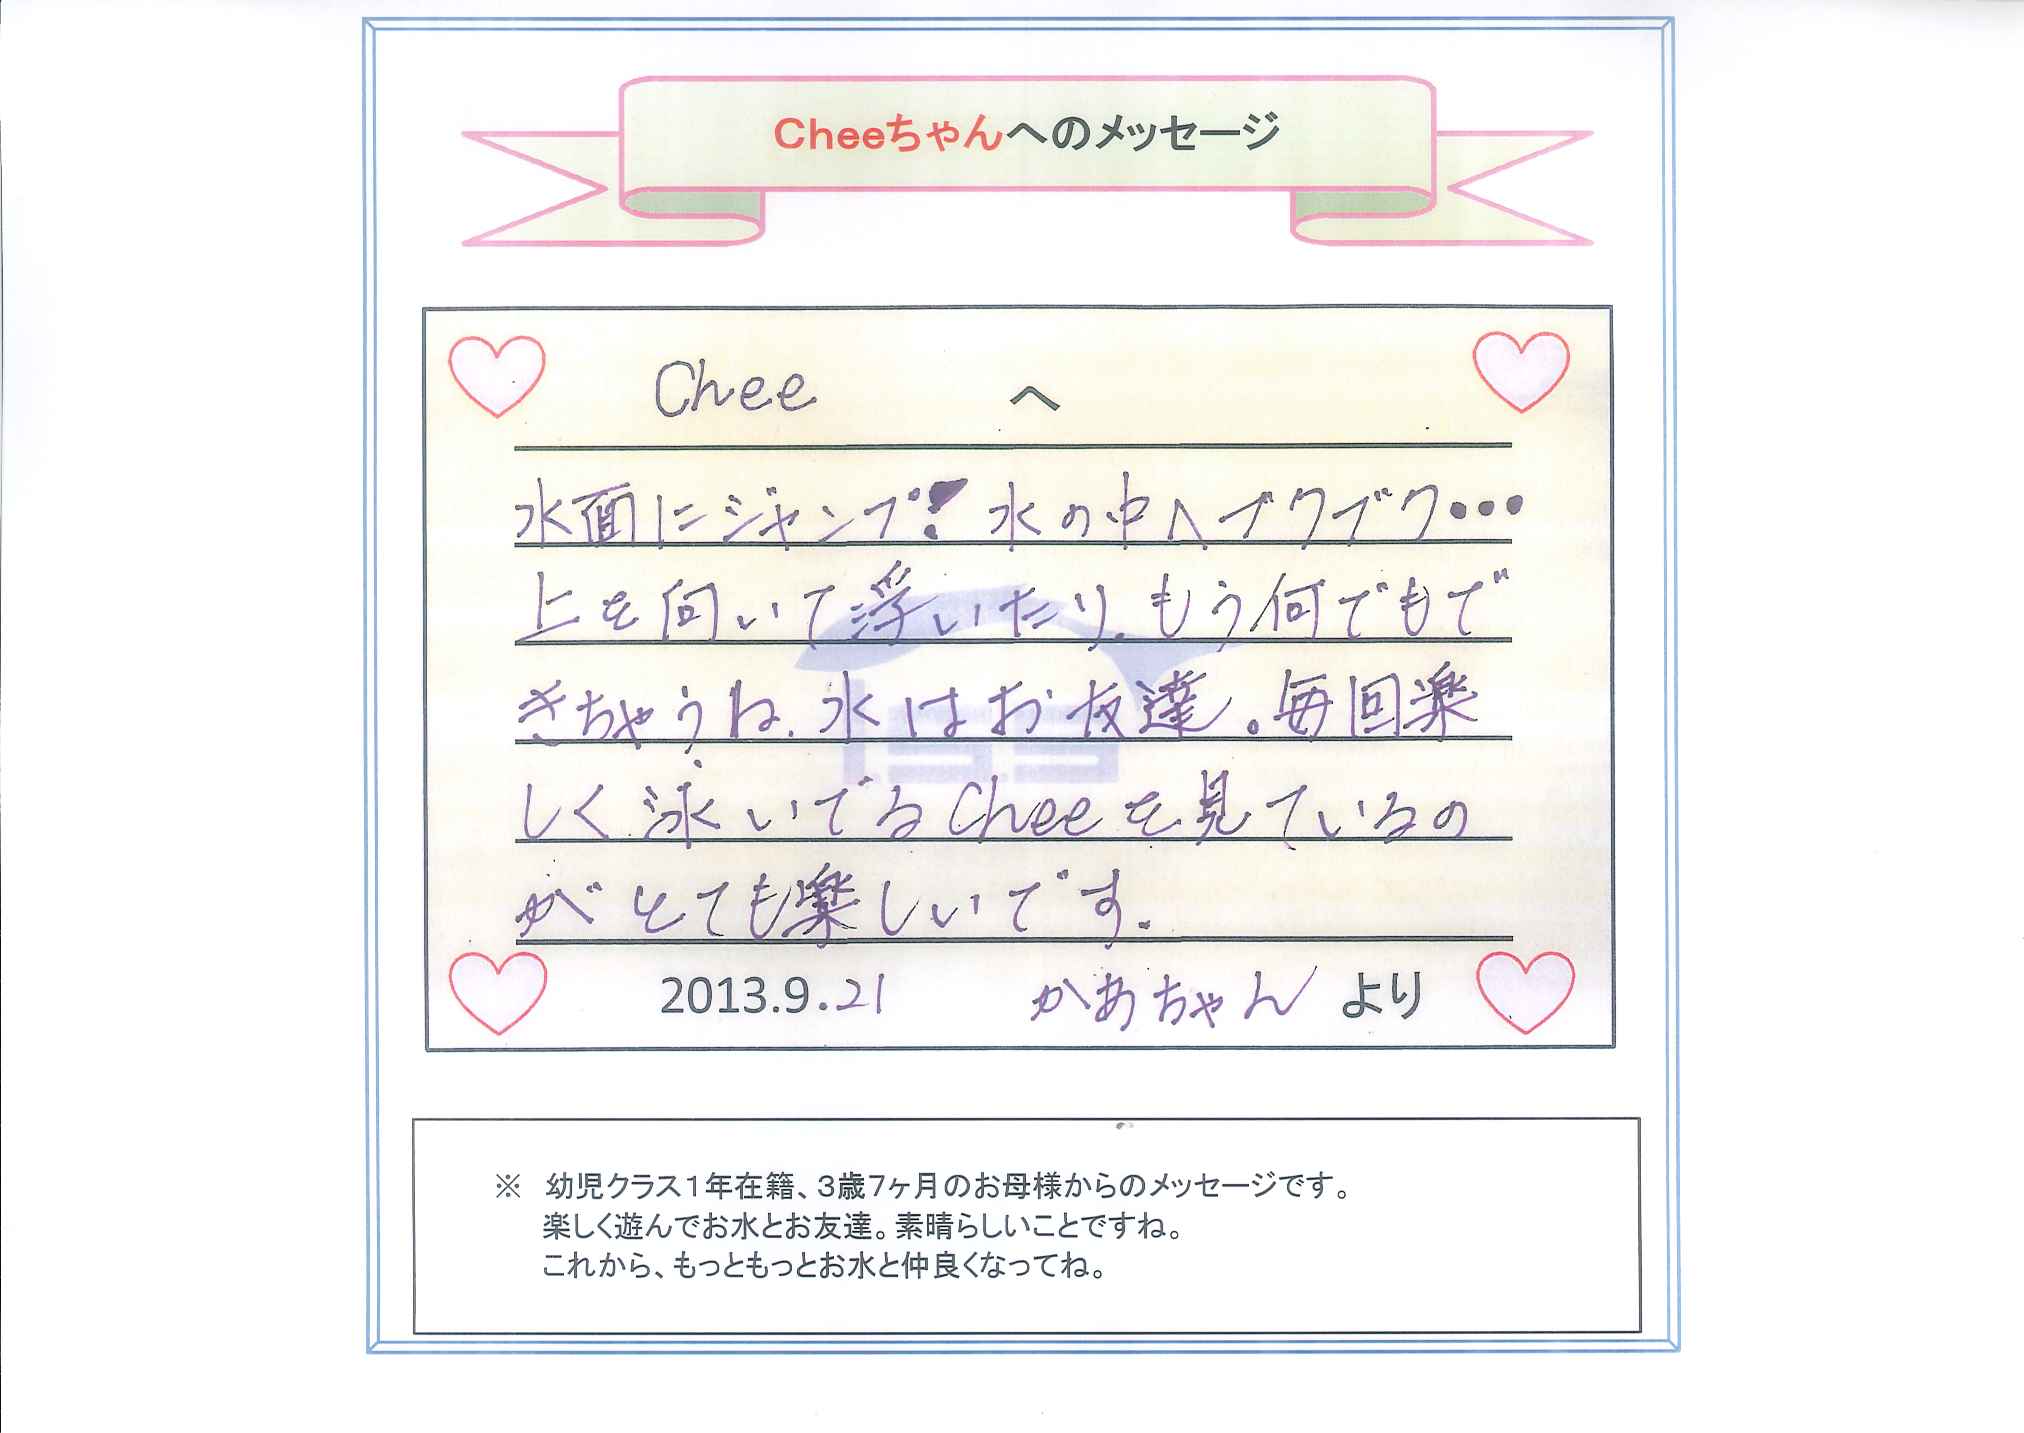 Cheeちゃんへのメッセージ
Chee へ
水面にジャンプ! 水の中へブクブク・・・
上を向いて浮いたり、もう何でもで
きちゃうね。水はお友達。毎回楽
しく泳いでるCheeを見ているの
がとても楽しいです。
2013.9.21 かあちゃん より
※ 幼児クラス1年在籍、3歳7ヶ月のお母様からのメッセージです。
楽しく遊んでお水とお友達。素晴らしいことですね。
これから、もっともっとお水と仲良くなってね。